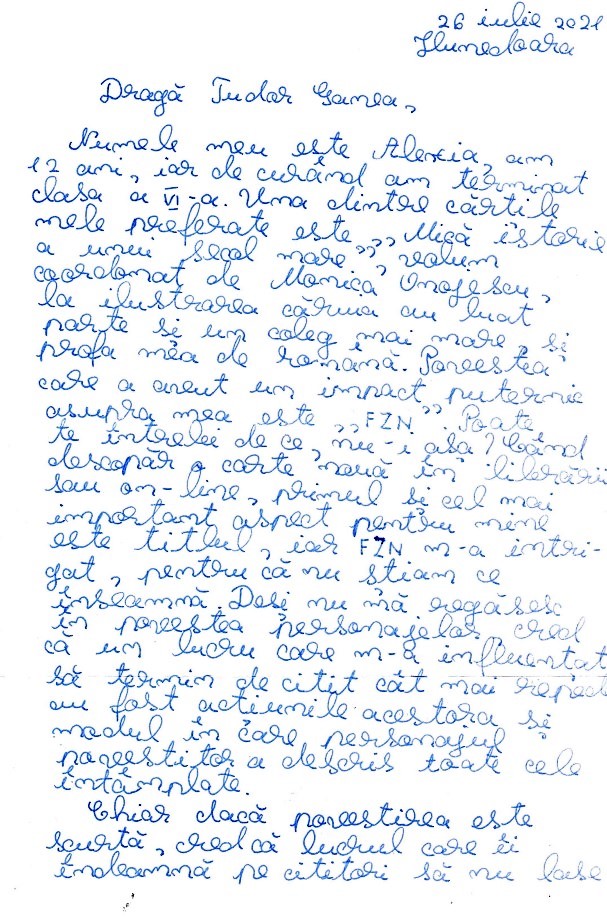 26 iulie 2021
Hunedoara
Dragă Tudor Ganea,
Numele meu este Alexia, am
12 ani, iar de curând am terminat
clasa a VI-a. Una dintre cărțile
mele preferate este ,,Mică istorie
a unui secol mare", volum
coordonat de Monica Onojescu,
la ilustrarea căruia au luat
parte și un coleg mai mare, și
profa mea de română. Povestea
care a avut un impact puternic
asupra mea este ,,FZN". Poate
te întrebi de ce, nu-i așa? Când
descopăr o carte nouă în librării
sau on-line, primul și cel mai
important aspect pentru mine
este titlul, iar FZN m-a intri-
gat, pentru că nu știam ce
înseamnă. Deși nu mă regăsesc
în povestea personajelor, cred
că un lucru care m-a influențat
să termin de citit cât mai repede
au fost acțiunile acestora și
modul în care personajul
povestitor a descris toate cele
întâmplate.
Chiar dacă povestirea este
scurtă, cred că lucrul care îi
îndeamnă pe cititori să nu lase